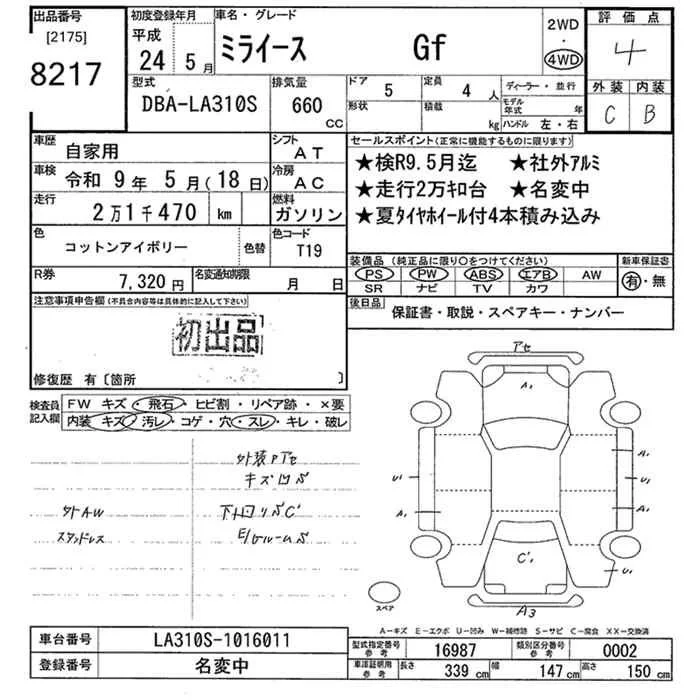 出品番号
[2175]
8217
初度登録年月
平成
24 5月
車名・グレード
ミライース Gf
2WD
・
4WD
評価点
4
外装 内装
C B
型式
DBA-LA310S
排気量
660
CC
ドア
5
定員
4 人
形状
積載
kg
ディーラー・並行
モデル年式 年
ハンドル 左・右
車歴
自家用
シフト
AT
車検
令和 9年 5月(18日)
冷房
AC
走行
2万1千470 km
燃料
ガソリン
色
コットンアイボリー
色替
色コード
T19
R券
7,320円
名変通知期限
月 日
セールスポイント(正常に機能するものに限ります)
★検R9.5月迄 ★社外アルミ
★走行2万キロ台 ★名変中
★夏タイヤホイール付4本積み込み
装備品 (純正品に限り○をつけてください)
新車保証書
PS PW ABS エアB AW
SR ナビ TV カワ
有・無
後日品
保証書・取説・スペアキー・ナンバー
注意事項申告欄(不具合内容等は具体的に記入して下さい)
初出品
修復歴 有〔箇所 〕
検査員記入欄
FW キズ・飛石・ヒビ割・リペア跡・×要
内装 キズ・汚レ・コゲ・穴・スレ・キレ・破レ
外装Pアセ
キズ凹パ
外AW
スタッドレス
下廻リパC'
E/gルームパ
アセ
A₁
A₁
U₁
U₁
A₁
A₁
C'₁
U₁
スペア
A3
A-キズ E-エクボ U-凹み W-補修跡 S-サビ C-腐食 XX-交換済
車台番号
LA310S-1016011
登録番号
名変中
型式指定番号
参考
16987
類別区分番号
参考
0002
車庫証明用
参考
長さ 339 cm
幅 147 cm
高さ 150 cm